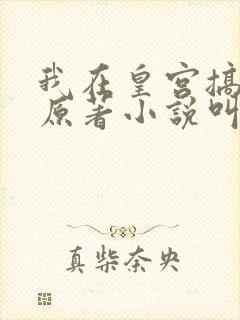 我在皇宫搞
原著小說叫
真柴奈央